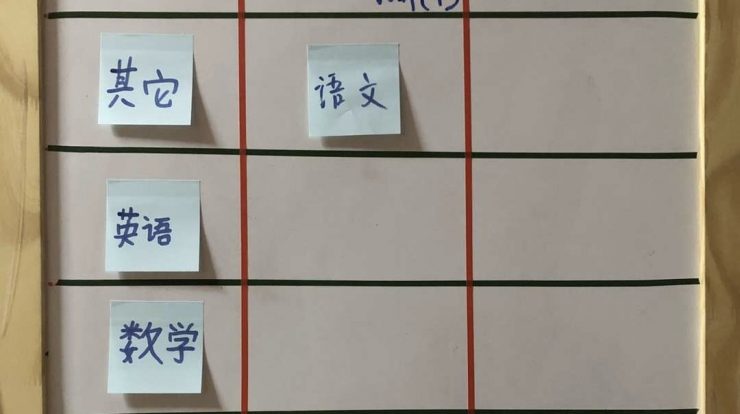 其它
语文
英语
数学